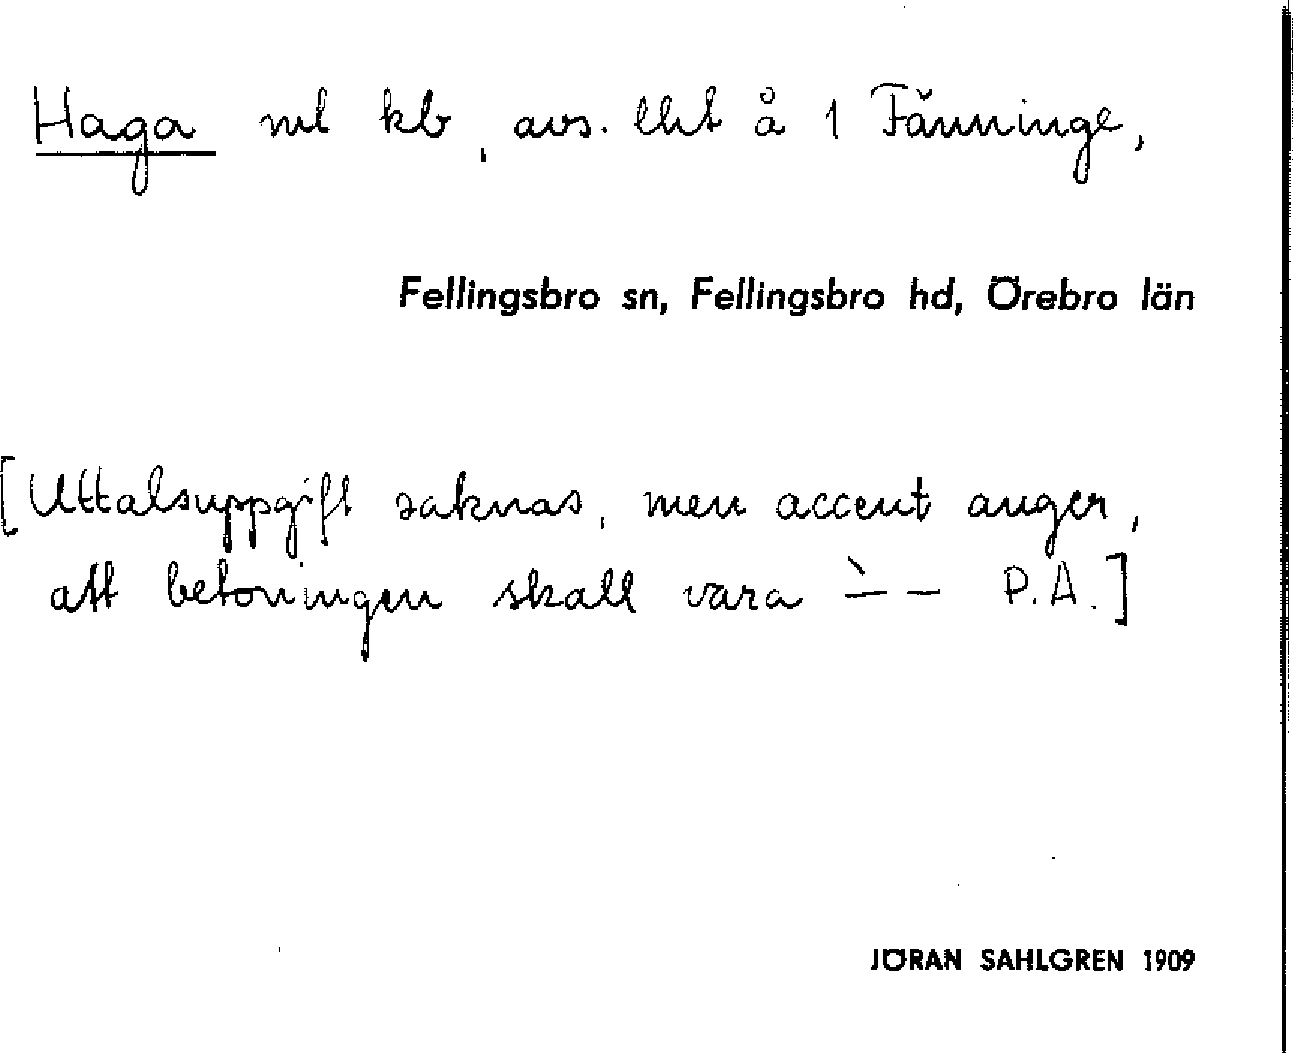 Haga ml kb, avs. lht å 1 Fänninge,
Fellingsbro sn, Fellingsbro hd, Örebro län
[Uttalsuppgift saknas, men accent anger,
att betoningen skall vara ˋ– – P.A.]
JÖRAN SAHLGREN 1909